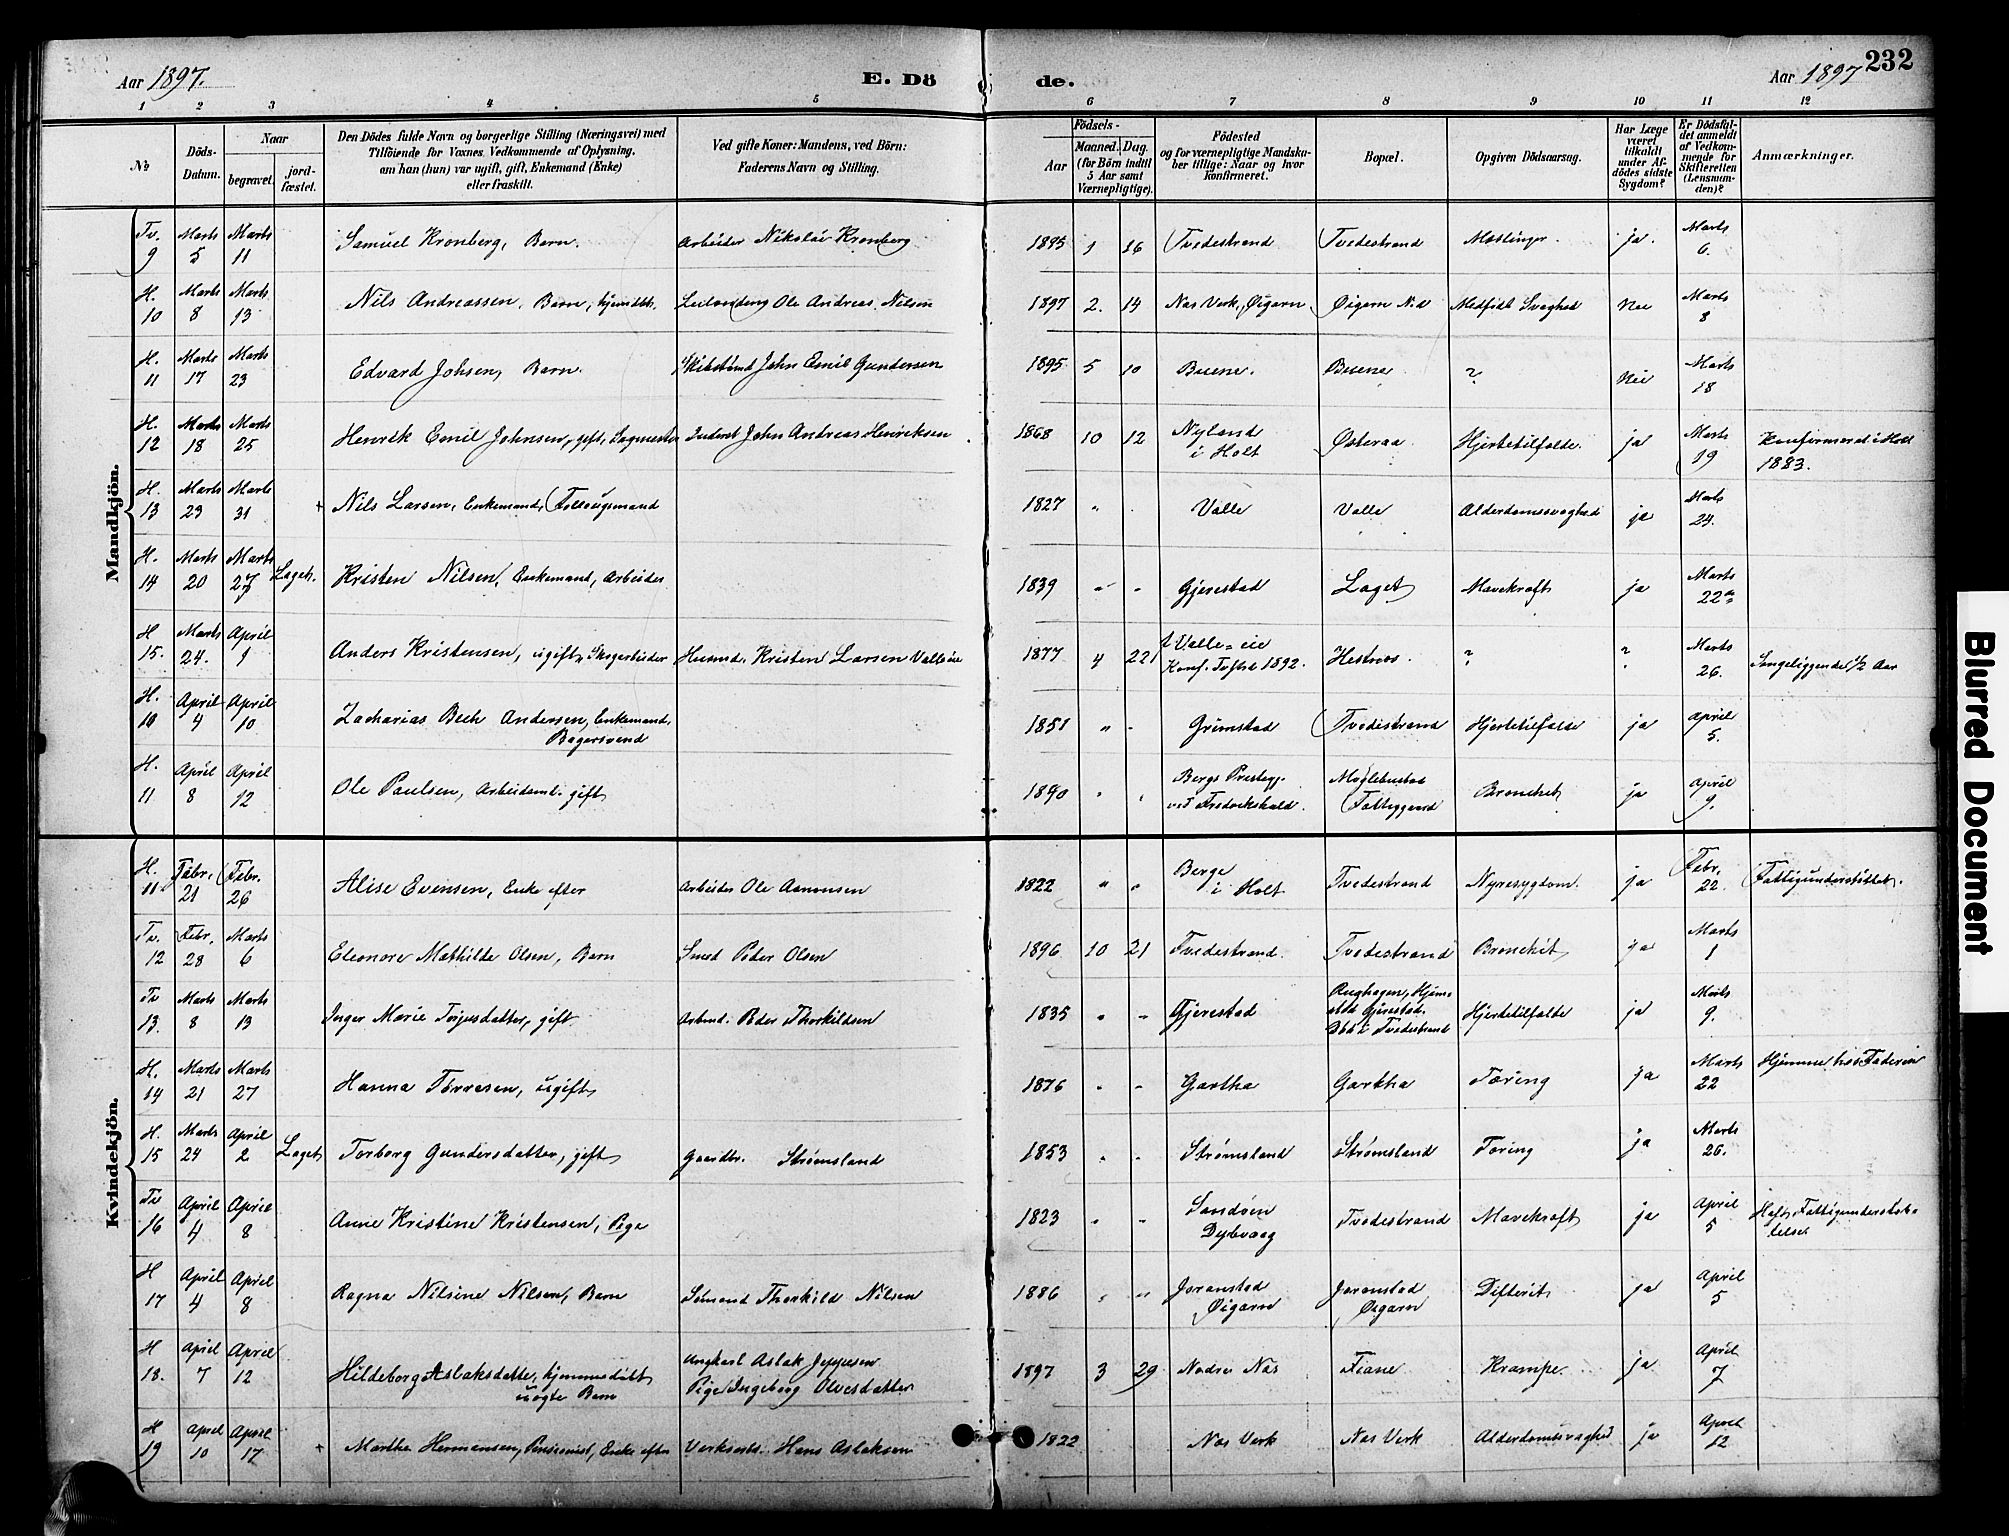 Aar 1897.
E. Dö
de.
Aar 1897
232
1 2 3 4 5 6 7 8 9 10 11 12
No
Döds-Datum.
Naar
begravet.
jord-fæstet.
Den Dödes fulde Navn og borgerlige Stilling (Næringsvei) med
Tilföiende for Voxnes Vedkommende af Oplysning,
om han (hun) var ugift, gift, Enkemand (Enke)
eller fraskilt.
Ved gifte Koner: Mandens, ved Börn:
Faderens Navn og Stilling.
Födsels-
Aar
Maaned. Dag.
(for Börn indtil
5 Aar samt
Værnepligtige).
Födested
og for værnepligtige Mandskaber tillige: Naar og hvor
konfirmeret.
Bopæl.
Opgiven Dödsaarsag.
Har Læge
været
tilkaldt
under Afdödes sidste
Sygdom?
Er Dödsfaldet anmeldt
af Vedkommende for
Skifteretten
(Lensmanden)?
Anmærkninger.
Mandkjön.
Tv. 9 Marts 5 Marts 11 Samuel Kronberg, Barn. Arbeider Nikolai Kronberg 1895 1 16 Tvedestrand Tvedestrand Mæslinger. ja. Marts 6.
H. 10 Marts 8 Marts 13 Nils Andreassen, Barn, hjemdbt. Ole Andreas Nilsen 1897 2. 14 Næs Verk, Øigarn Øigarn N.d Medfødt Svaghed Nei Marts 8
H. 11 Marts 17 Marts 23 Edvard Johsen, Barn. John Emil Gundersen 1895 5 10 Buene. Buene ? Nei Marts 18
H. 12 Marts 18 Marts 25 Henrik Emil Johnsen, gift, Sagmester Inderst John Andreas Henriksen 1868 10 12 Nyland i Holt Østeraa Hjertetilfælde. ja Marts 19 Konfirmeret i Holt 1883.
H. 13 Marts 23 Marts 31 + Nils Larsen, Enkemand, Follaugsmand 1827 " . Valle Valle Alderdomssvaghed ja Marts 24.
H. 14 Marts 20 Marts 27 Laget. Kristen Nilsen, Enkemand, Arbeider 1839 " " Gjerestad Laget Mavekræft ja Marts 22de
H 15. Marts 24. April 1 Anders Kristensen, ugift, Skogarbeider Husmd. Kristen Larsen Valleeie 1877 4 22 Valle-eie Konf. Tvstrd 1892. Hestnes. ? ? Marts 26. Sengeliggende 1/2 Aar
H. 10 April 4 April 10 Zacharias Bech Andersen, Enkemand, Bagersvend 1851 " " Grimstad Tvedestrand Hjertetilfælde ja April 5.
H. 11 April 8 April 12 Ole Paulsen, Arbeidsml. gift 1890 " " Bergs Prestegj. ved Fredrikshald. Møglebustad Fattiggaard Bronchit ja April 9.
Kvindekjön.
H. 11. Febr. 21 Febr. 26 Alise Evensen, Enke efter Arbeider Ole Aanonsen 1822 " " Berge i Holt Tvedestrand Nyresygdom. ja Febr. 22. Fattigunderstøttet.
Tv. 12 Febr. 28 Marts 6 Eleonore Mathilde Olsen, Barn Smed Peder Olsen 1896 10 21 Tvedestrand. Tvedestrand Bronchit ja Marts 1
Tv 13. Marts 8 Marts 13 Inger Marie Terjesdatter, gift. Arbmd. Peder Thorkildsen 1835 " " Gjerestad Hjemsted Gjerestad. i Tvedestrand Hjertetilfælde ja Marts 9.
H. 14 Marts 21 Marts 27 Hanna Terresen, ugift 1876 " " Gartha Gartha Tæring ja Marts 22 Hjemme hos Faderen
H. 15 Marts 24 April 2 Laget Torborg Gundersdatter, gift Gaardbr. Strømsland 1853 " " Strømsland Strømsland Tæring ja Marts 26.
Tv 16 April 4 April 8 Anne Kristine Kristensen, Pige 1823 " " Sandøen Dybvaag Tvedestrand Mavekræft ja April 5 Havt Fattigunderstøttelse
H 17 April 4 April 8 Ragna Nilsine Nilsen, Barn Sømand Thorkild Nilsen 1886 " " Joranstad Øigarn Joranstad Øigarn Difterit ja April 5
H 18. April 7 April 12 Hildeborg Aslaksdatter, hjemmedøbt uægte Barn Ungkarl Aslak Jeppesen Pige Ingeborg Olvesdatter 1897 3 29 Nedre Næs Fiane Krampe. ja April 7
H 19 April 10 April 17 + Marthe Hermansen, Pensionist, Enke efter Verksarb. Hans Aslaksen 1822 Næs Verk Næs Verk Alderdomssvaghed ja April 12
Blurred Document